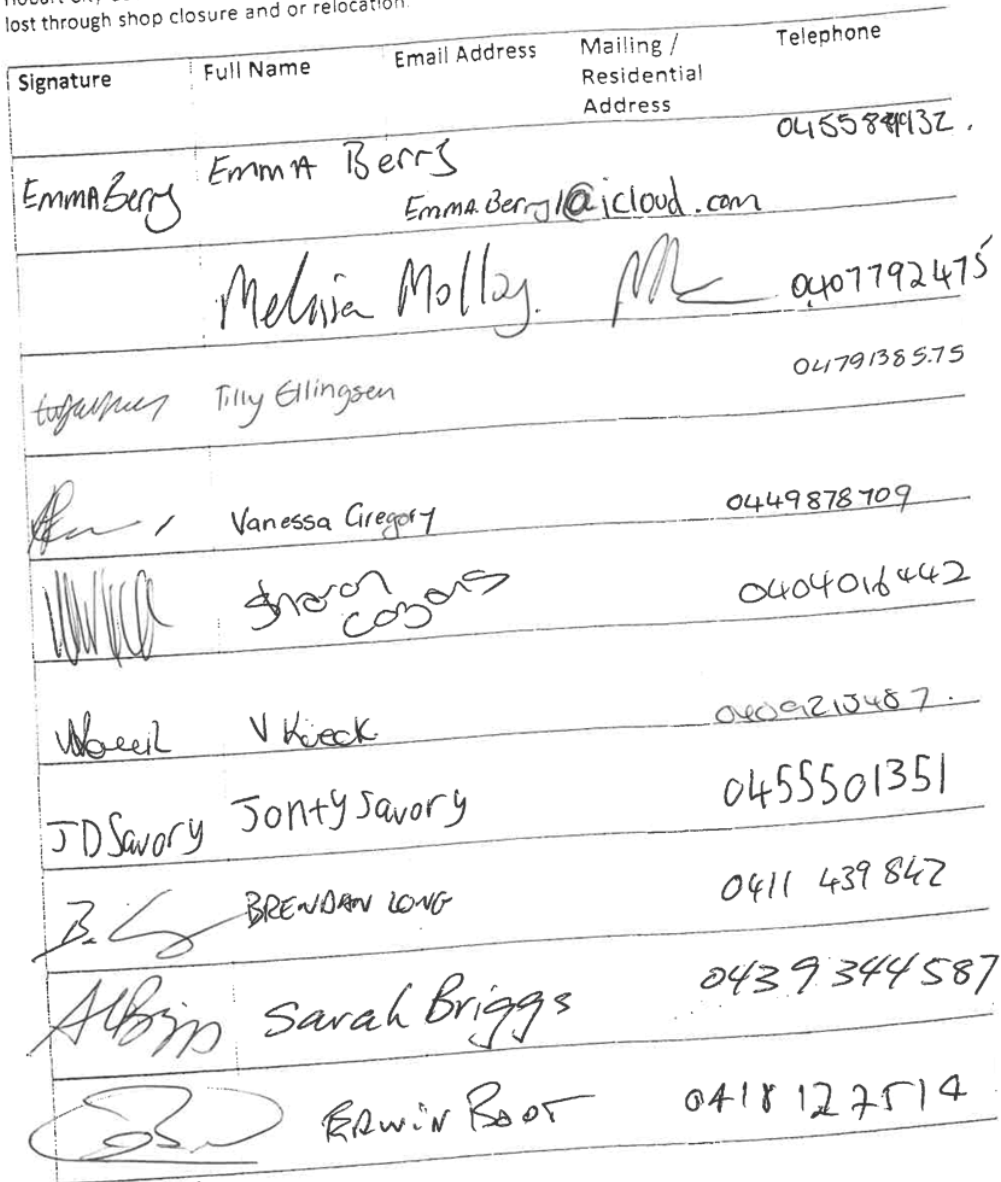 lost through shop closure and or relocation.
Signature Full Name Email Address Mailing / Residential Address Telephone
Emma Berry Emma Berry 0455
EmmA.Berry1@icloud.com
Melissa Molloy. 0407792475
Tilly Ellingsen 0479138575
Vanessa Gregory 0449878709
Sharon 0404016442
V 
JD Savory Jonty Savory 0455501351
B. L BRENDAN LONG 0411 439 842
Sarah Briggs 0439 344 587
ERWIN BOOT 0418 127514